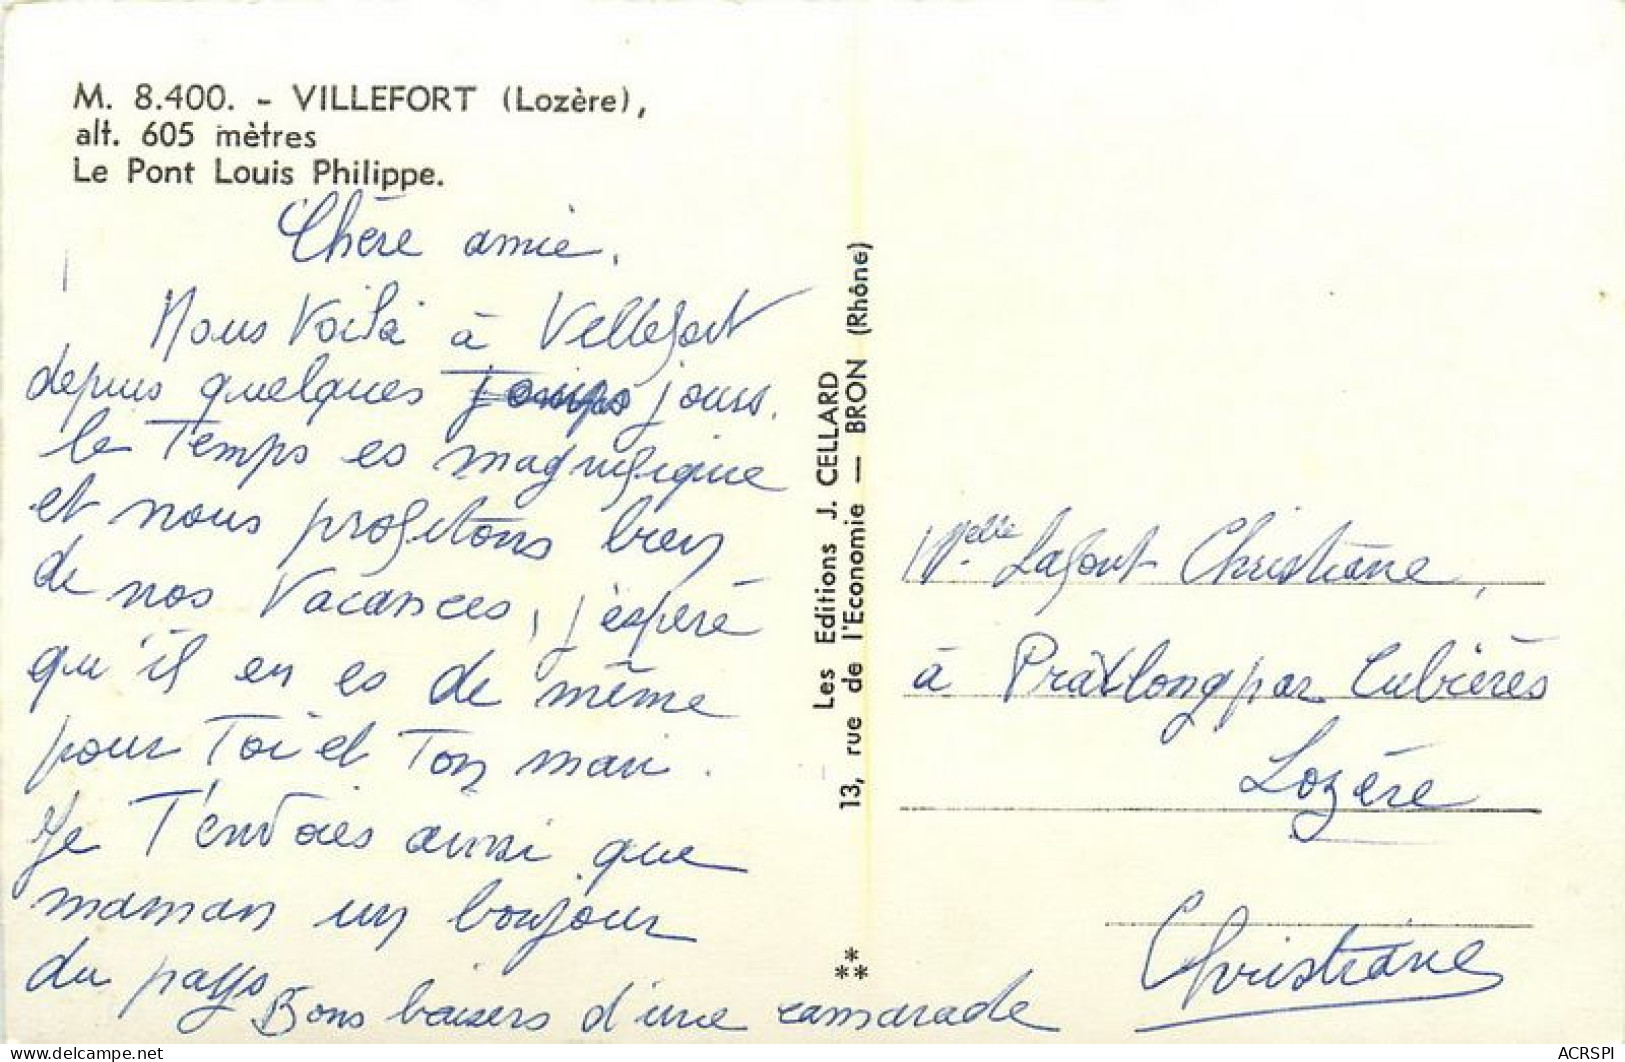 M. 8.400. - VILLEFORT (Lozère),
alt. 605 mètres
Le Pont Louis Philippe.
Chère amie,
Nous Voilà à Villefort
depuis quelques jours.
le Temps es magnifique
et nous profitons bien
de nos Vacances, j'espère
qu'il en es de même
pour Toi et Ton mari.
Je T'envoies ainsi que
maman un bonjour
du pays
Bons baisers d'une camarade
Christiane
Les Editions J. CELLARD
13, rue de l'Economie — BRON (Rhône)
Melle Lafont Christiane,
à Pratlong par Cubières
Lozère
ACRSPI